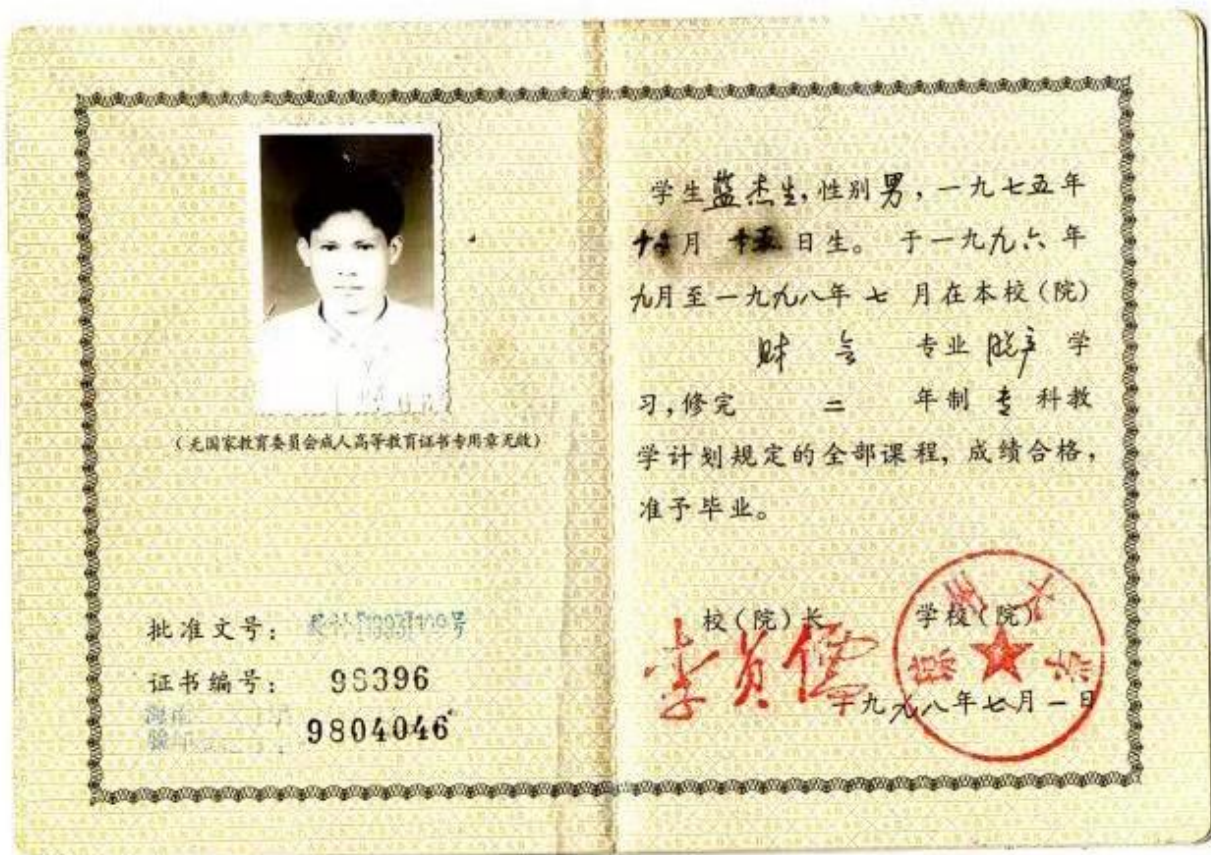 (无国家教育委员会成人高等教育证书专用章无效)
批准文号:
证书编号: 98396
9804046
学生蓝杰生,性别男,一九七五年
月 日生。 于一九九六年
九月至一九九八年七 月在本校(院)
财会 专业脱产 学
习,修完 二 年制 专 科教
学计划规定的全部课程, 成绩合格,
准予毕业。
校(院)长 学校(院)
李员儒
琼州大学
一九九八年七月一日